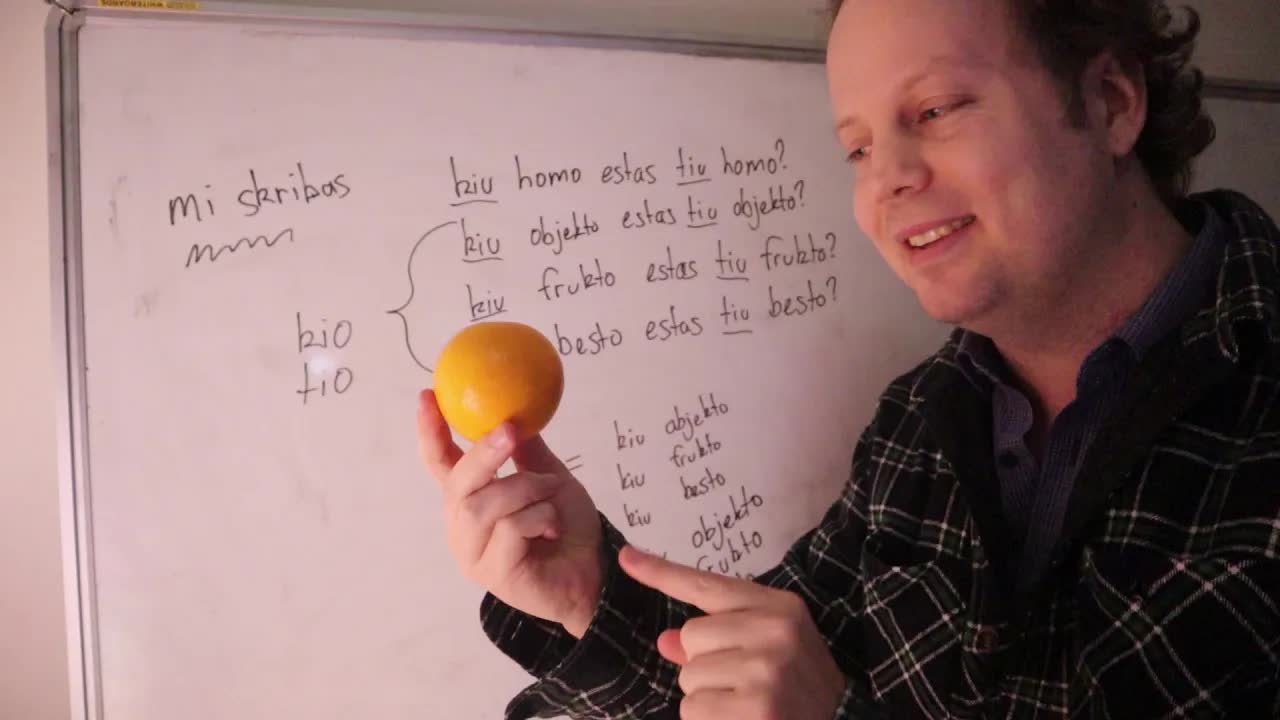 mi skribas
kiu homo estas tiu homo?
kiu objekto estas tiu objekto?
kiu frukto estas tiu frukto?
besto estas tiu besto?
kio
tio
= kiu abjekto
kiu frukto
kiu besto
objekto
frukto